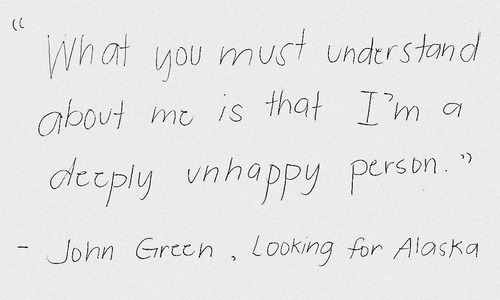 “
What you must understand
about me is that I'm a
deeply unhappy person.”
- John Green, Looking for Alaska